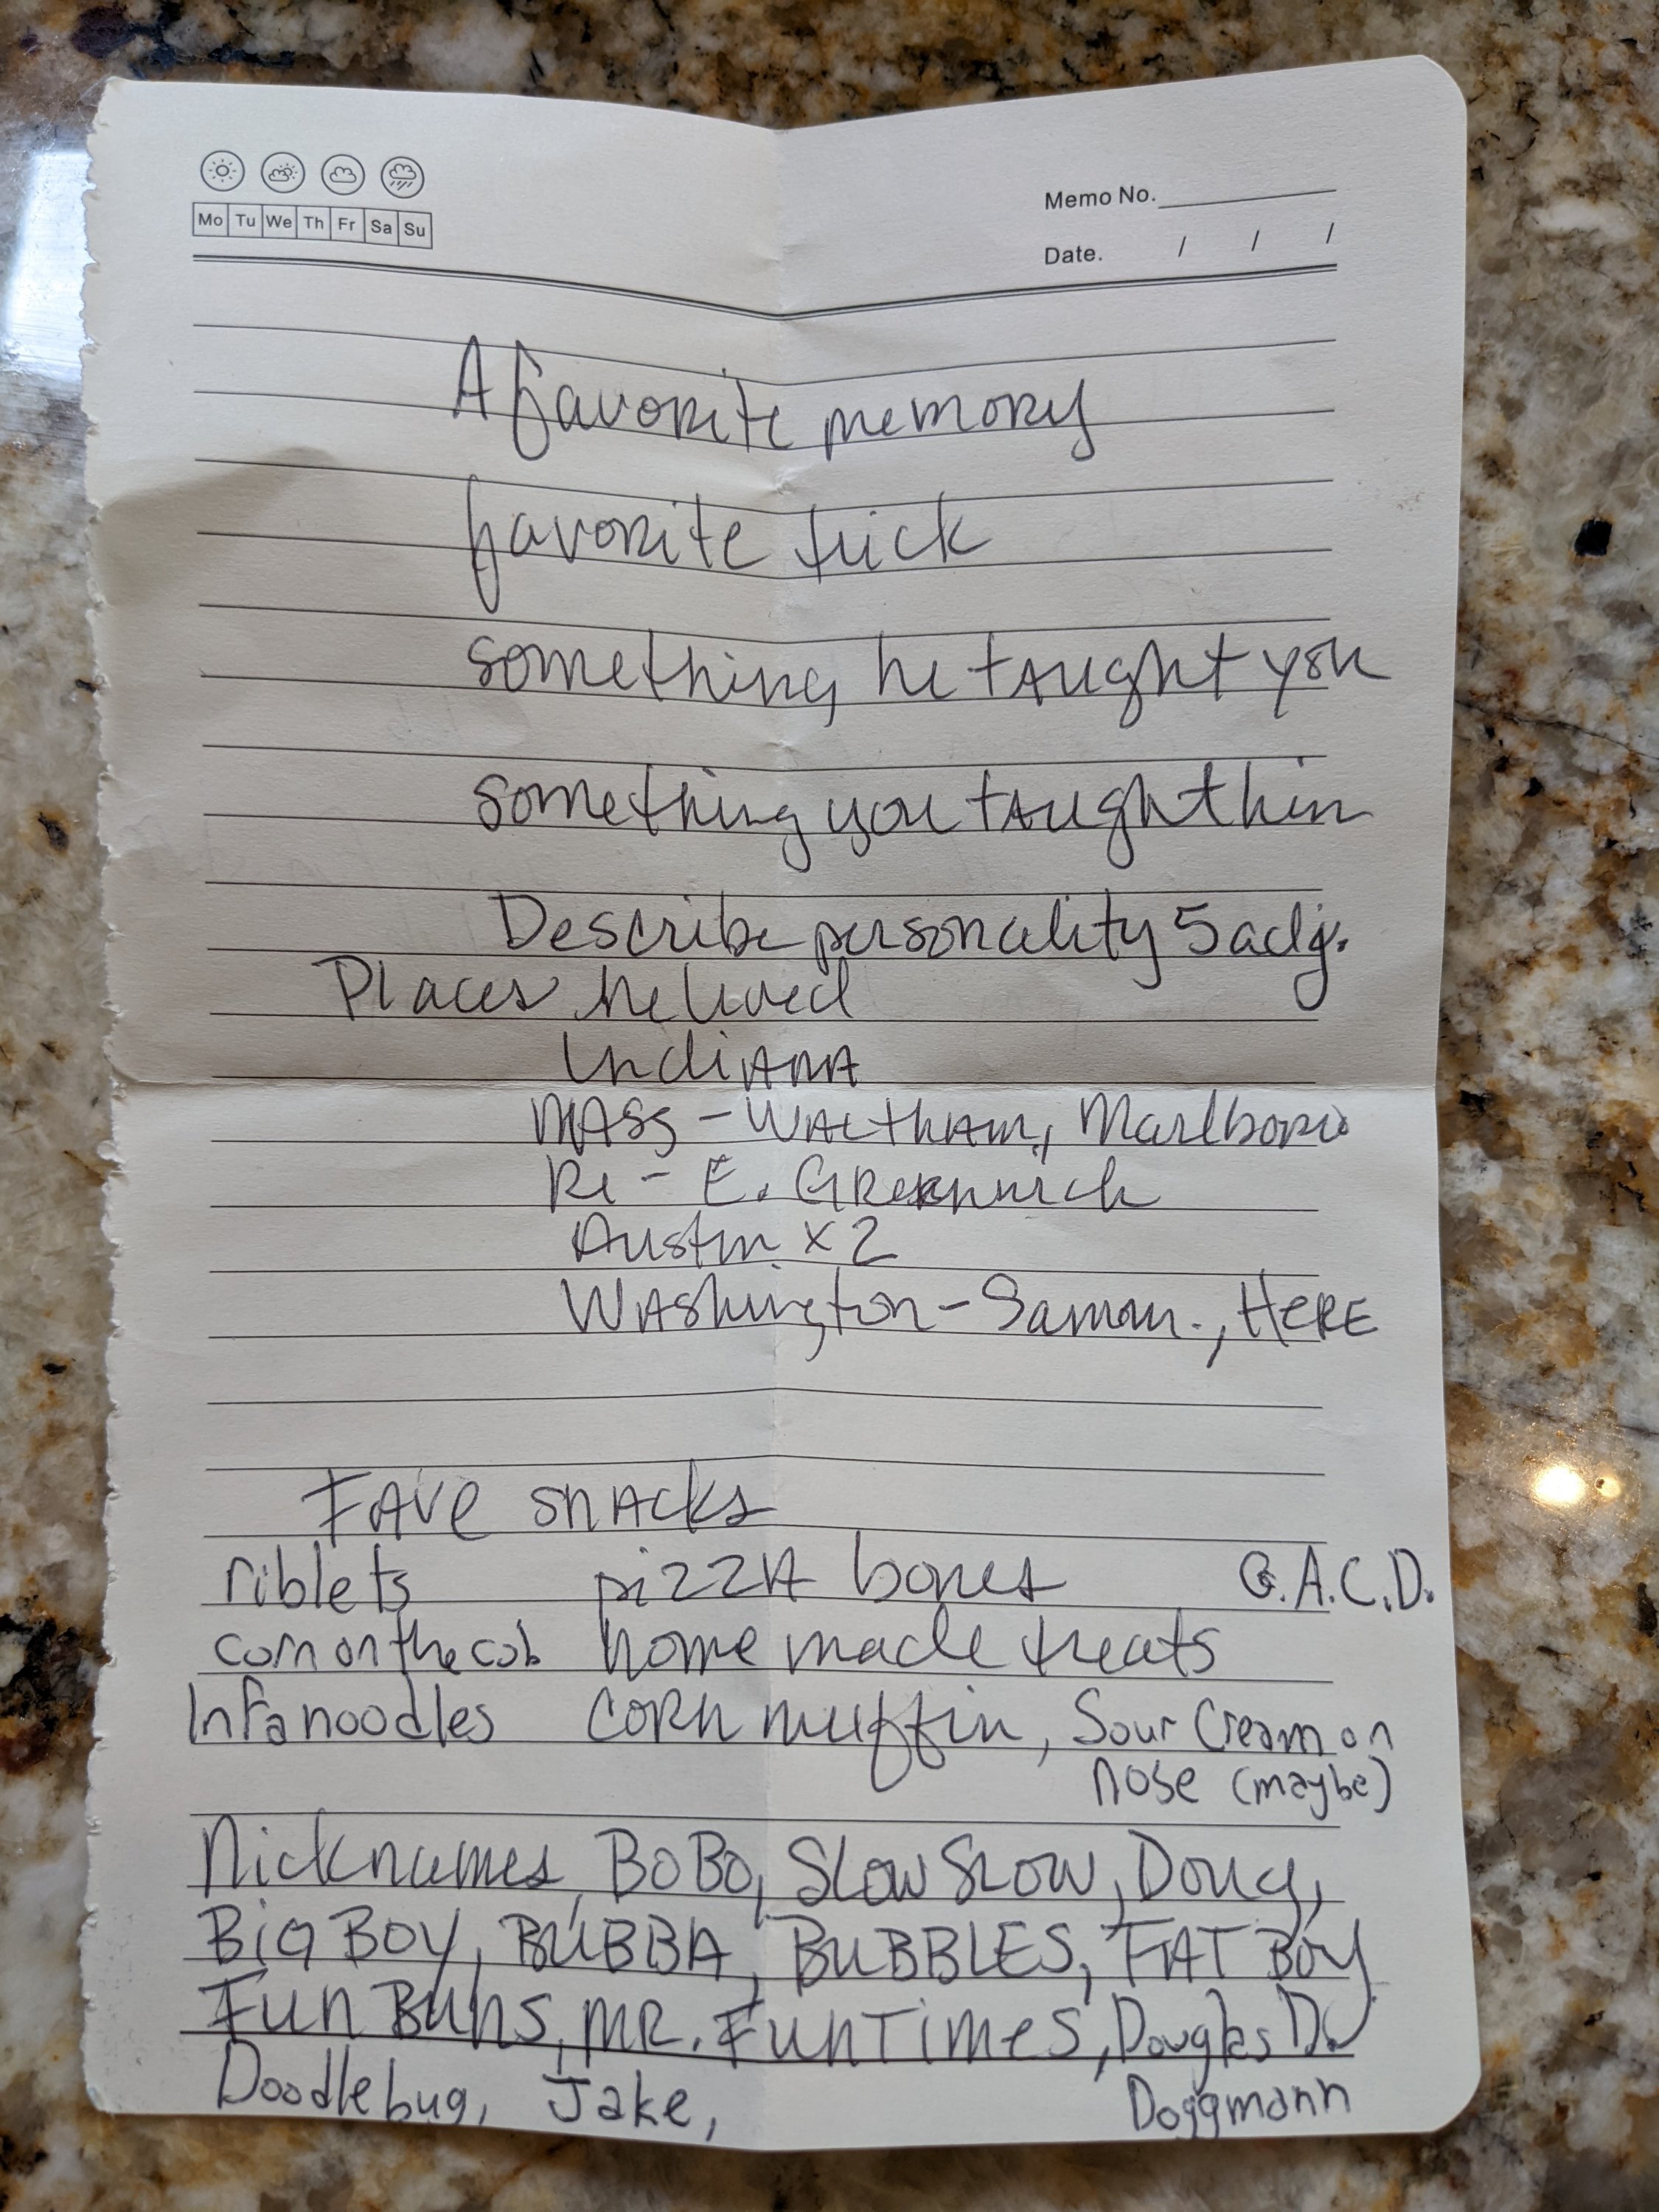 Mo Tu We Th Fr Sa Su
Memo No.
Date. / / /
A favorite memory
favorite trick
something he taught you
something you taught him
Describe personality 5 adj.
Places he lived
Indiana
MASS - WALTHAM, Marlboro
RI - E. Greenwich
Austin x 2
Washington - Samm., HERE
FAVE SNACKS
riblets pizza bones G.A.C.D.
corn on the cob home made treats
Infanoodles corn muffin, Sour Cream on
nose (maybe)
Nicknames, BoBo, SLOW SLOW, Doug,
Big BOY, BUBBA, BUBBLES, FAT BOY
Fun Buns, MR. FunTimes, Douglas D.
Doodlebug, Jake, Doggmann